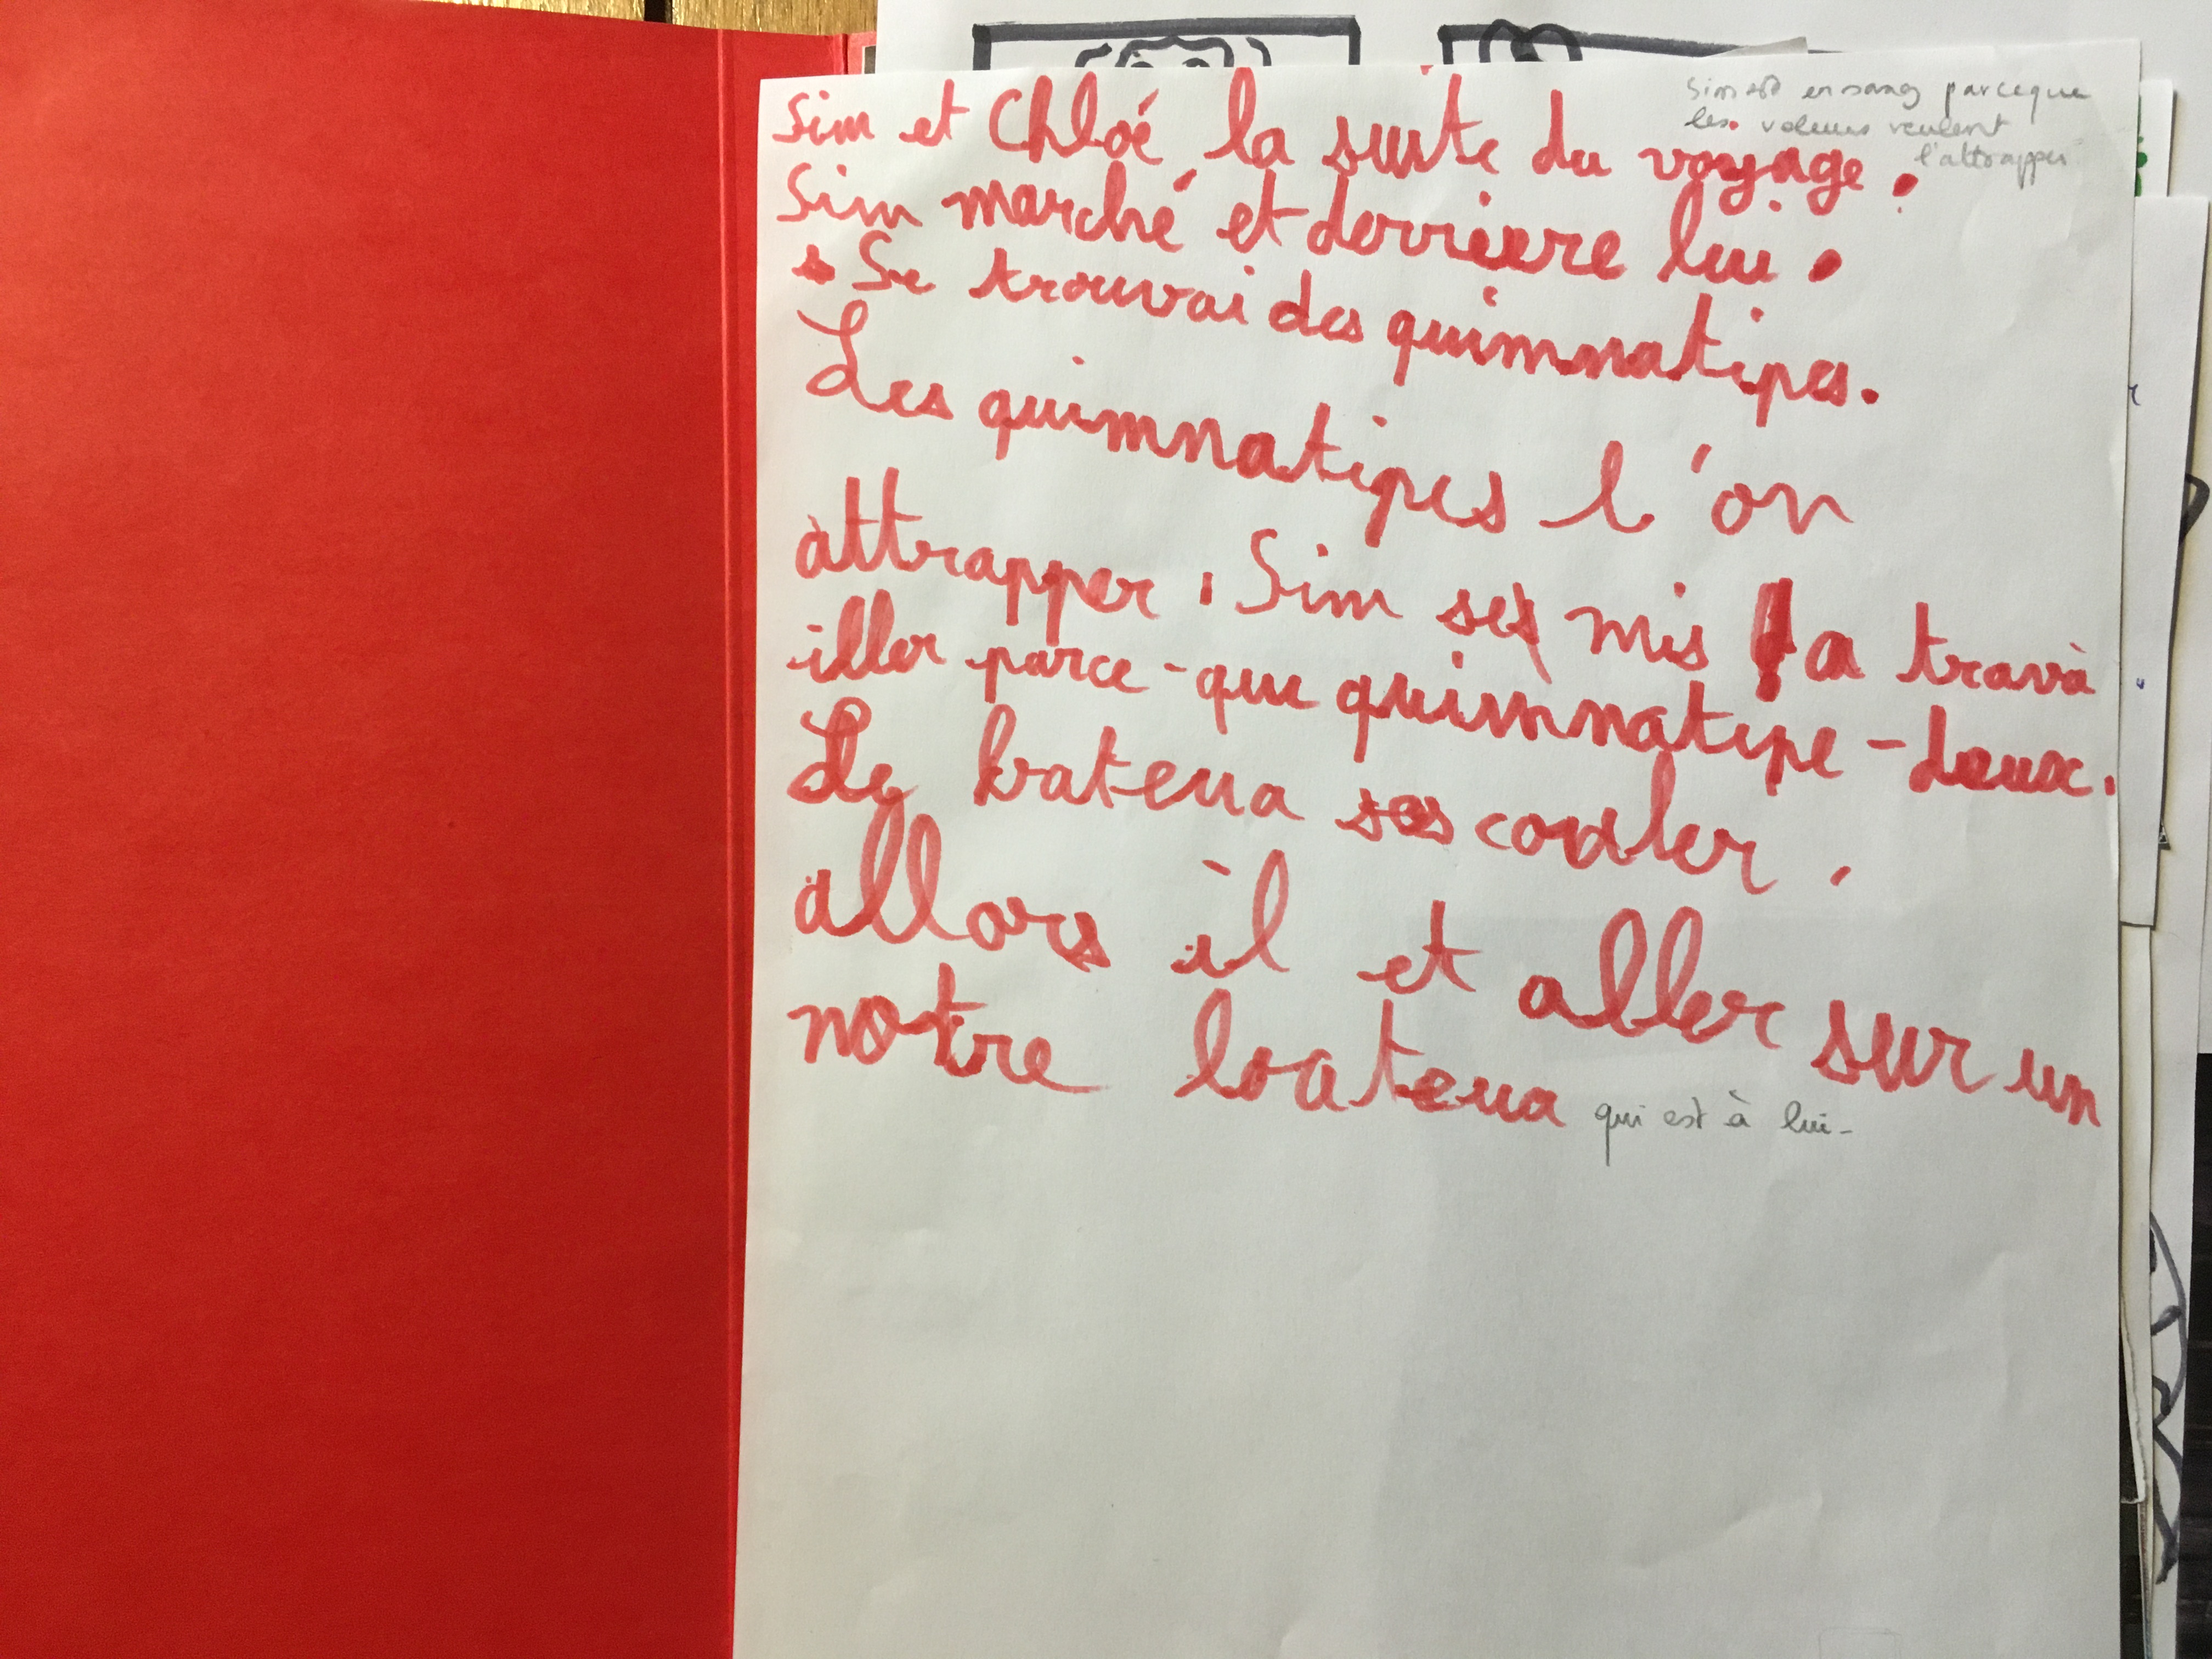 Sim et Chloé la suite du voyage.
Sim est en sang parceque
les voleurs veulent
l'attrapper
Sim marché et derrieere lui.
Se trouvai des quimnatipes.
Les quimnatipes l'on
attrapper. Sim ses mis a trava
iller parce-que quimnatipe-deux.
Le bateua ses couler.
allors il et aller sur un
notre bateua qui est à lui-